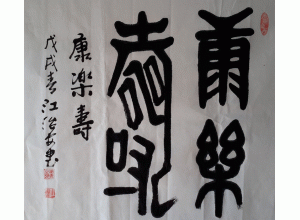 康樂
壽
康樂壽
戊戌春江